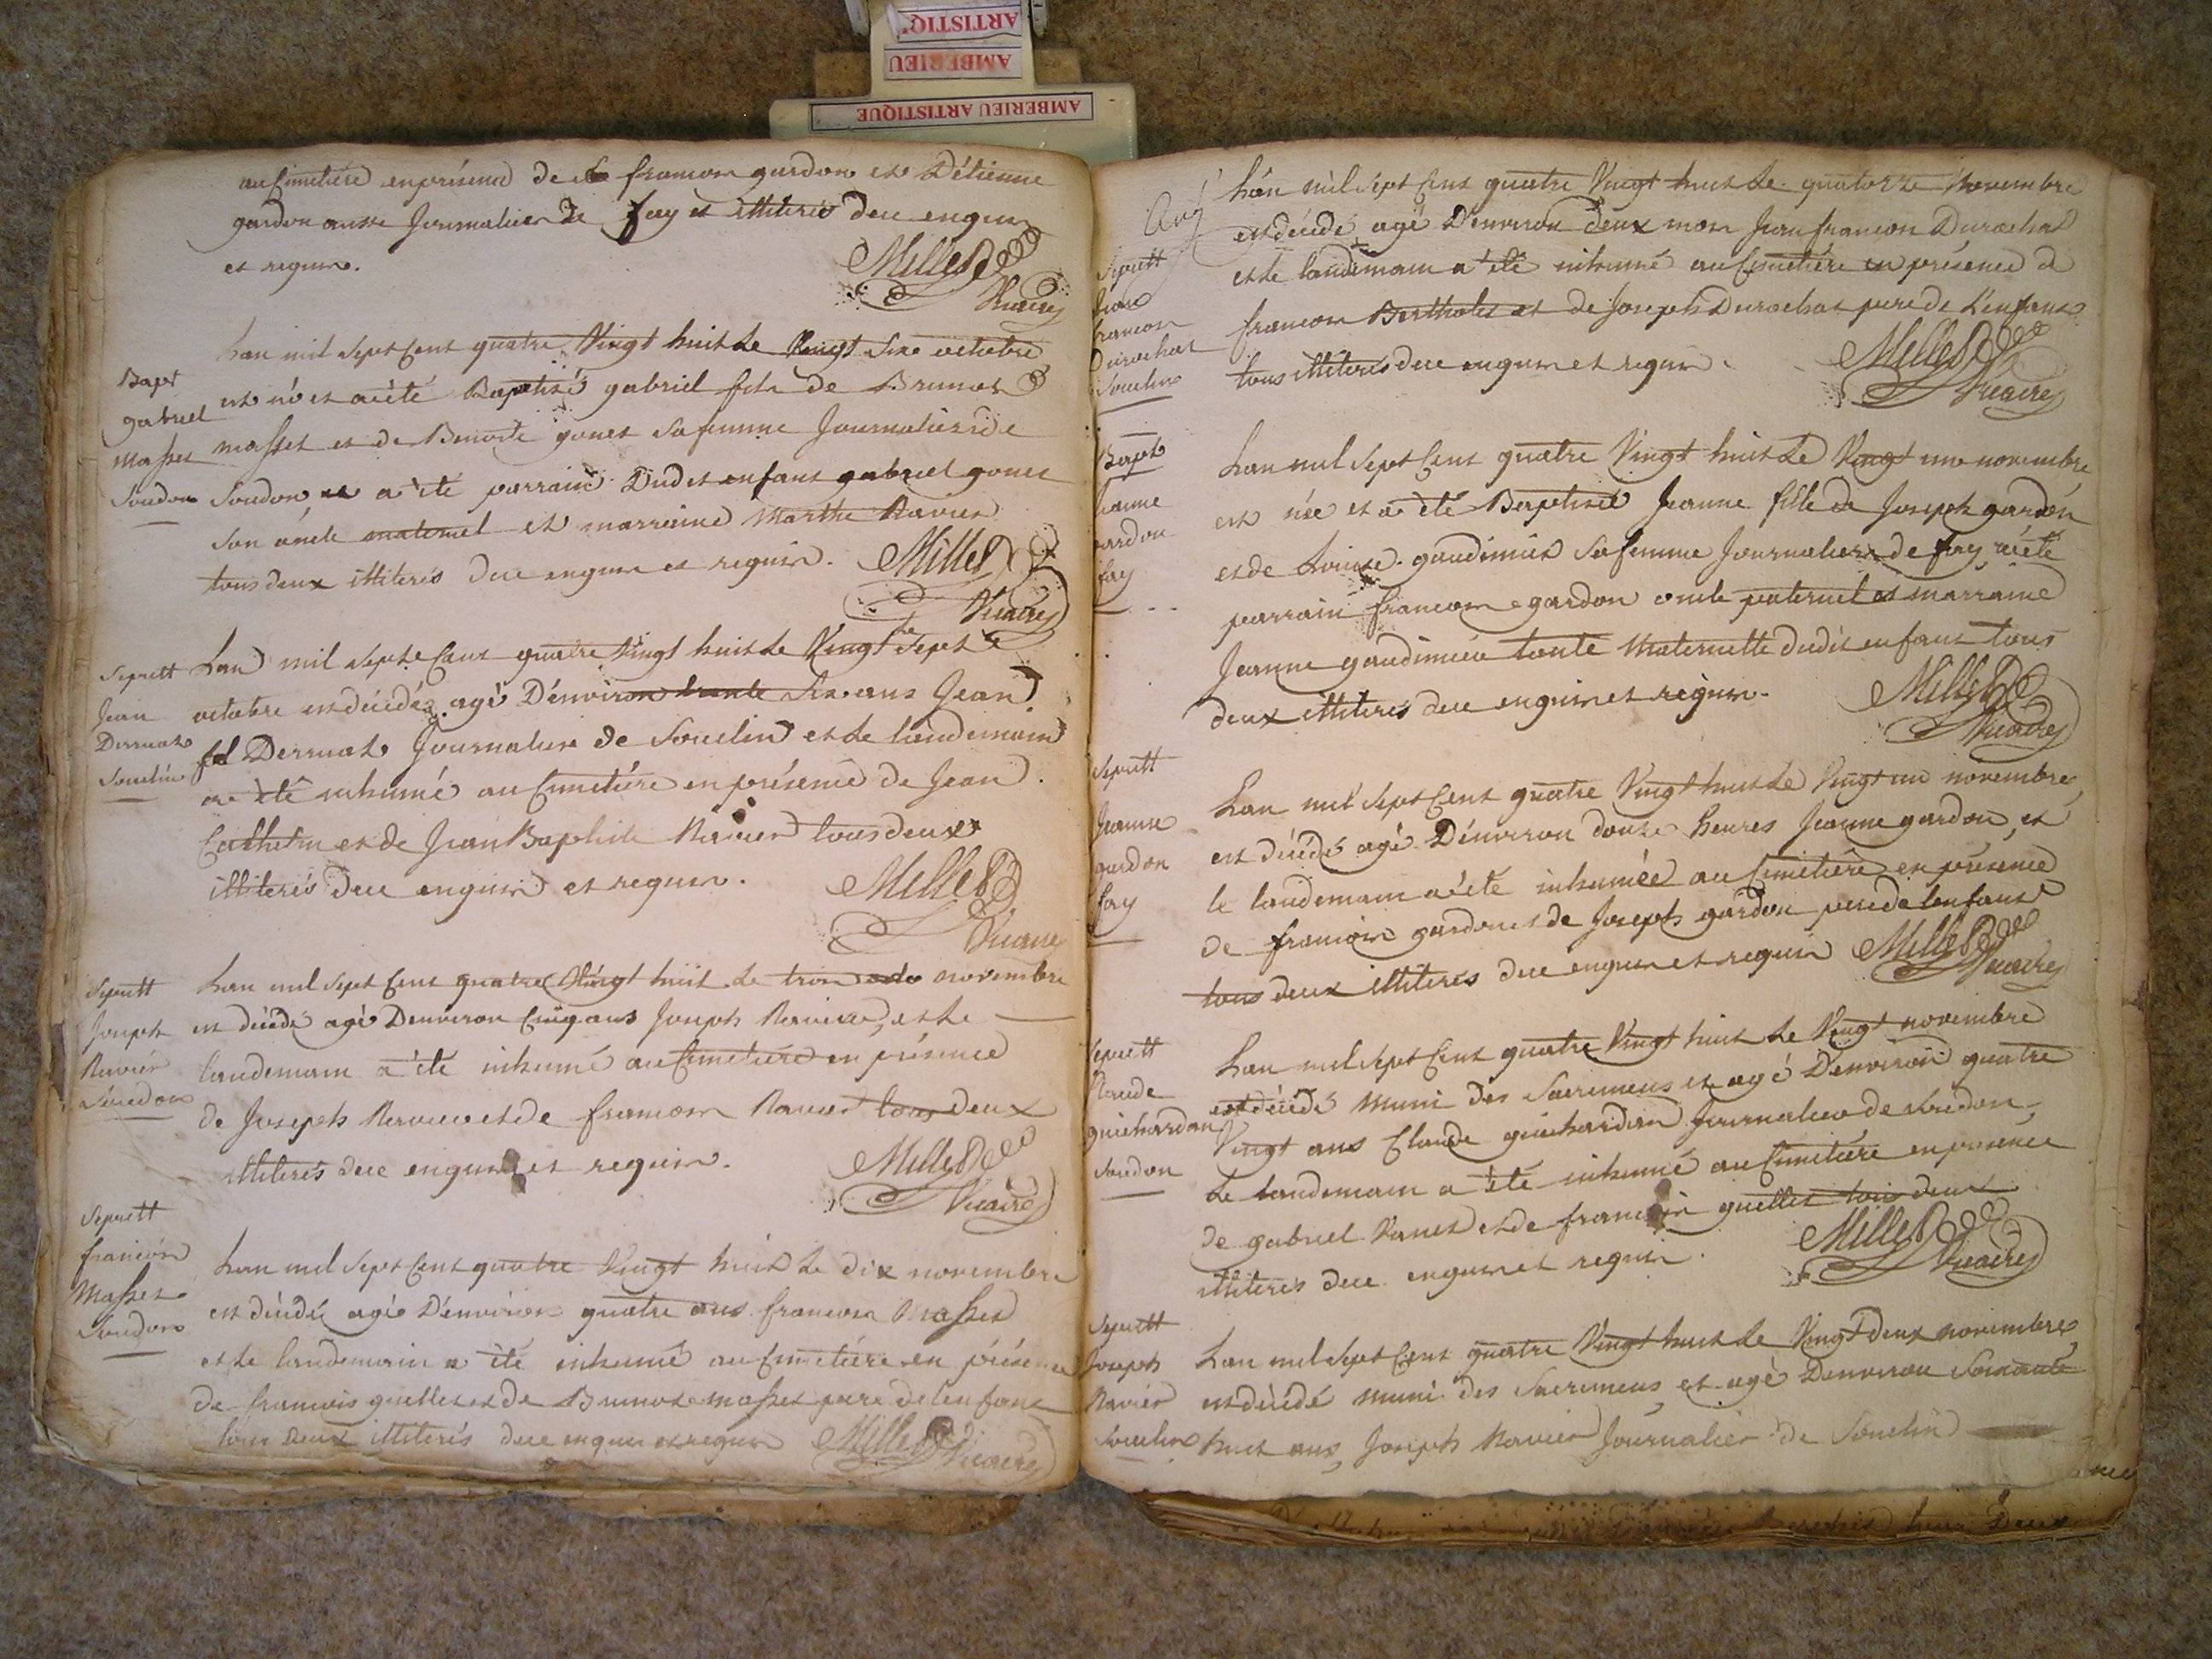 ARTISTIQ
AMBERIEU
AMBERIEU ARTISTIQUE
au Cimetiére en présence de francois gardon et D'étienne
gardon aussi Journalier de fay et illiterés duement enquis
et requis.
Millet
Vicaire
Bapt
gabriel
masset
Soudon
Lan mil sept Cent quatre Vingt huit Le Vingt Sixe octobre
est né et a été Baptisé gabriel fils de Brunet
masset et de Benoite gonet Sa femme Journalier de
Soudon, et a été parrain Dudit enfant gabriel gonet
son oncle maternel et marraine Marthe Ravier
tous deux illiterés duement enquis et requis.
Millet
Vicaire
Sepult
Jean
Derruat
Souclin
Lan mil sept Cent quatre Vingt huit Le Vingt Sept
octobre est décédé agé D'environ trente Six ans Jean
Derruat Journalier de Souclin et le landemain
a été inhumé au Cimetiére en présence de Jean
et de Jean Baptiste Ravier tous deux
illiterés duement enquis et requis.
Millet
Vicaire
Sepult
Joseph
Ravier
Lan mil sept Cent quatre Vingt huit Le trois novembre
est décédé agé D'environ Cinq ans Joseph Ravier, et le
landemain a été inhumé au Cimetiére en présence
de Joseph Ravier et de francois Ravier tous deux
illiterés duement enquis et requis.
Millet
Vicaire
Sepult
francois
Masset
Soudon
Lan mil sept Cent quatre Vingt huit Le dix novembre
est décédé agé D'environ quatre ans francois Masset
et le landemain a été inhumé au Cimetiére en présence
de francois guellet et de Brunet masset pere de lenfant
tous deux illiterés duement enquis et requis
Millet
Vicaire
Sepult
Jean
francois
Durochat
Souclin
Lan mil sept Cent quatre Vingt huit Le quatorze Novembre
est décédé agé D'environ deux mois Jean francois Durochat
et le landemain a été inhumé au Cimetiére en présence de
francois Bertholet et de Joseph Durochat pere de L'enfant
tous illiterés duement enquis et requis.
Millet
Vicaire
Bapt
Jeanne
gardon
fay
Lan mil sept Cent quatre Vingt huit Le Vingt un novembre
est née et a été Baptisée Jeanne fille de Joseph gardon
et de Louise gaudimier Sa femme Journalier de fay a été
parrain francois gardon oncle paternel et marraine
Jeanne gaudimier tante Maternelle dudit enfant tous
deux illiterés duement enquis et requis.
Millet
Vicaire
Sepult
Jeanne
gardon
fay
Lan mil sept Cent quatre Vingt huit Le Vingt un novembre
est décédé agé D'environ douze heures Jeanne gardon, et
le landemain a été inhumée au Cimetiére en présence
de francois gardon et de Joseph gardon pere de lenfant
tous deux illiterés duement enquis et requis
Millet
Vicaire
Sepult
Claude
guichardan
Soudon
Lan mil sept Cent quatre Vingt huit Le Vingt novembre
est décédé muni des Sacremens et agé D'environ quatre
Vingt ans Claude guichardan Journalier de Soudon,
Le landemain a été inhumé au Cimetiére en présence
de gabriel et de francois guellet tous deux
illiterés duement enquis et requis.
Millet
Vicaire
Sepult
Joseph
Ravier
Souclin
Lan mil sept Cent quatre Vingt huit Le Vingt deux novembre
est décédé muni des Sacremens et agé D'environ Soixante
huit ans Joseph Ravier Journalier de Souclin